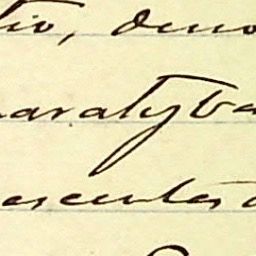 tio, deno
aratyba
ascentes d